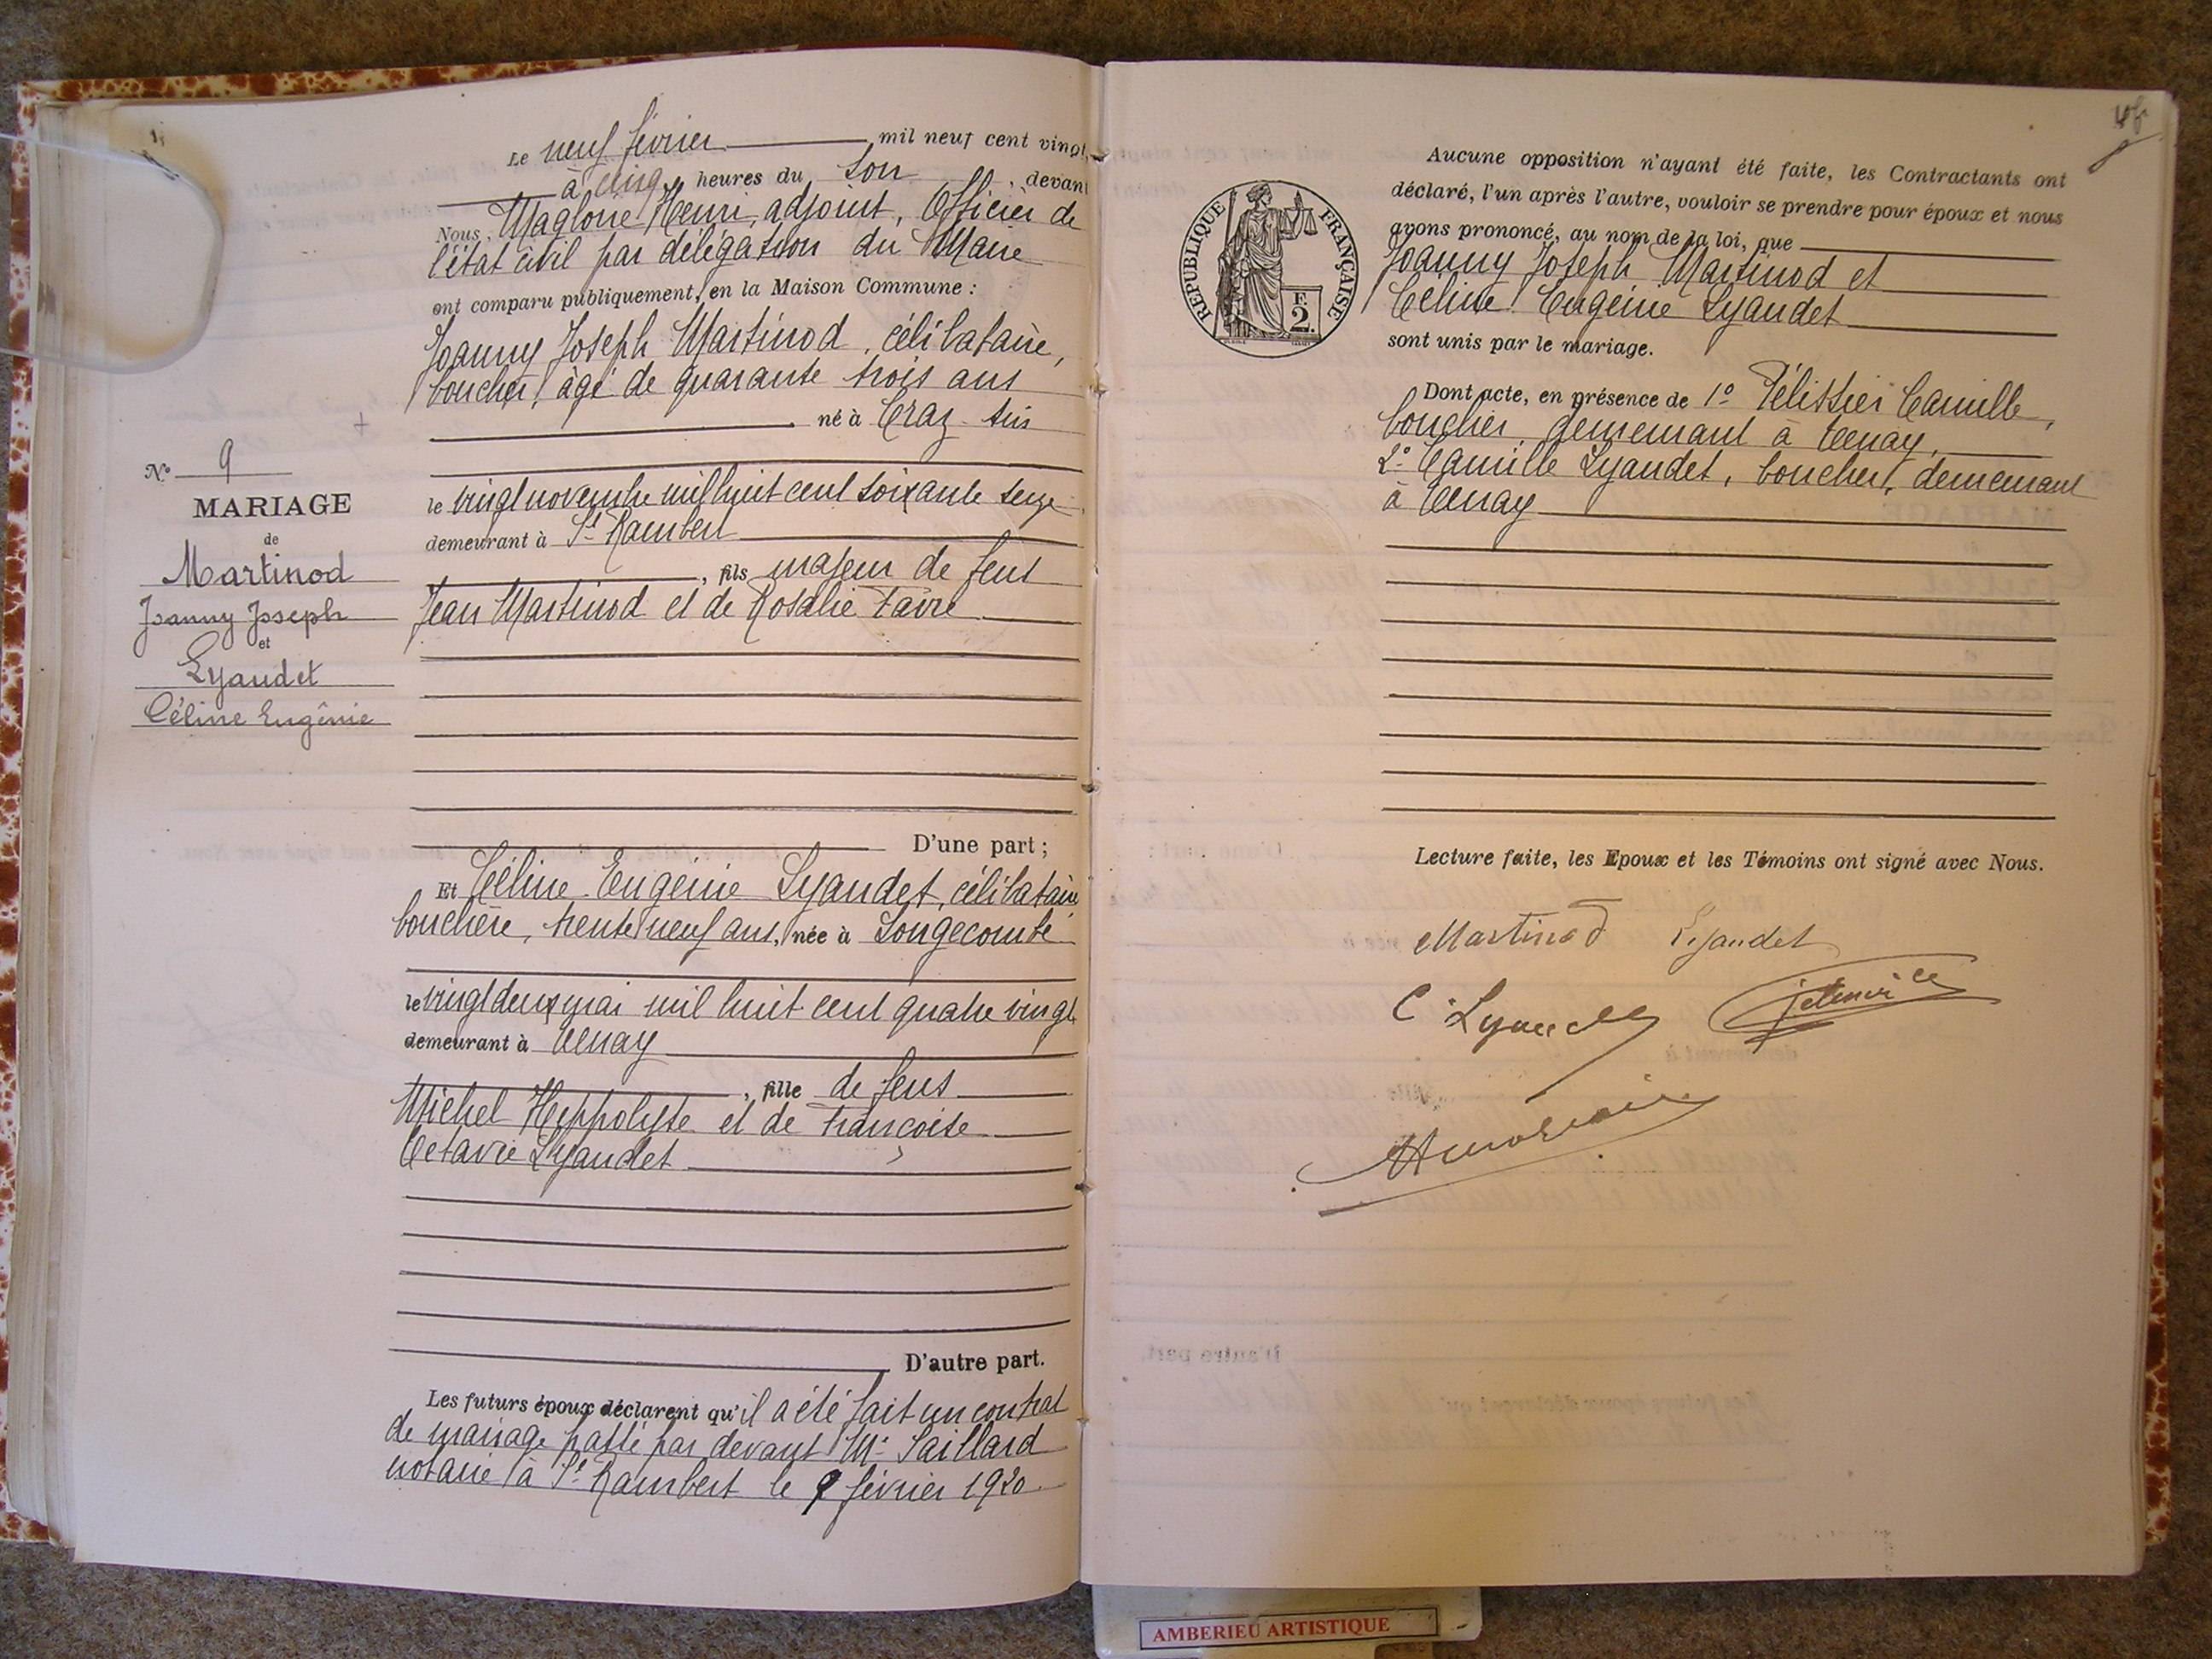 Le neuf février mil neuf cent vingt,
à cinq heures du soir, devant
Nous, Magloire Henri, adjoint, Officier de
l'état civil par délégation du Maire
ont comparu publiquement, en la Maison Commune :
Joanny Joseph Martinod, célibataire,
boucher, âgé de quarante trois ans
né à Craz-sur
le vingt novembre mil huit cent soixante seize
demeurant à St Rambert
, fils majeur de feus
Jean Martinod et de Rosalie Favre
D'une part ;
N° 9
MARIAGE
de
Martinod
Joanny Joseph
et
Lyaudet
Céline Eugénie
Et Céline Eugénie Lyaudet, célibataire
bouchère, trente neuf ans, née à Longecombe
le vingt deux mai mil huit cent quatre vingt
demeurant à Tenay
, fille de feus
Michel Hyppolyte et de Françoise
Octavie Lyaudet
D'autre part.
Les futurs époux déclarent qu'il a été fait un contrat
de mariage passé par devant Me Saillard
notaire à St Rambert le 9 février 1920
46
REPUBLIQUE FRANÇAISE
F.
2.
Aucune opposition n'ayant été faite, les Contractants ont
déclaré, l'un après l'autre, vouloir se prendre pour époux et nous
avons prononcé, au nom de la loi, que
Joanny Joseph Martinod et
Céline Eugénie Lyaudet
sont unis par le mariage.
Dont acte, en présence de 1° Pélissier Camille,
boucher, demeurant à Tenay,
2° Camille Lyaudet, boucher, demeurant
à Tenay
Lecture faite, les Epoux et les Témoins ont signé avec Nous.
Martinod Lyaudet
C. Lyaudet
AMBERIEU ARTISTIQUE